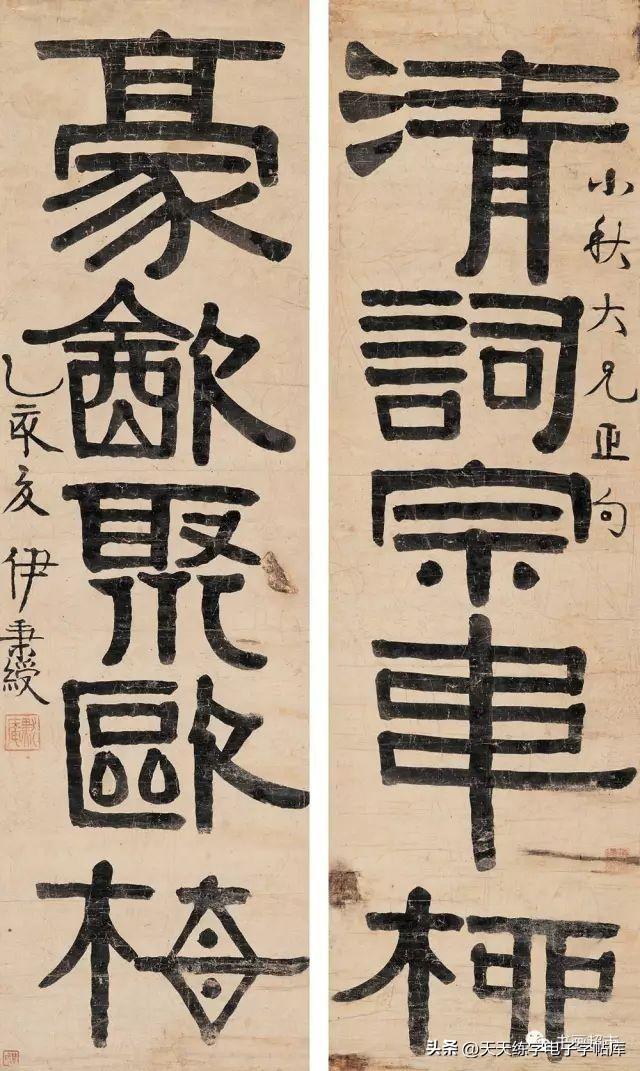 小秋大兄正句
清詞宗韋柳
豪㱃聚歐梅
乙亥夏 伊秉綬
头条 @天天练字电子字帖库